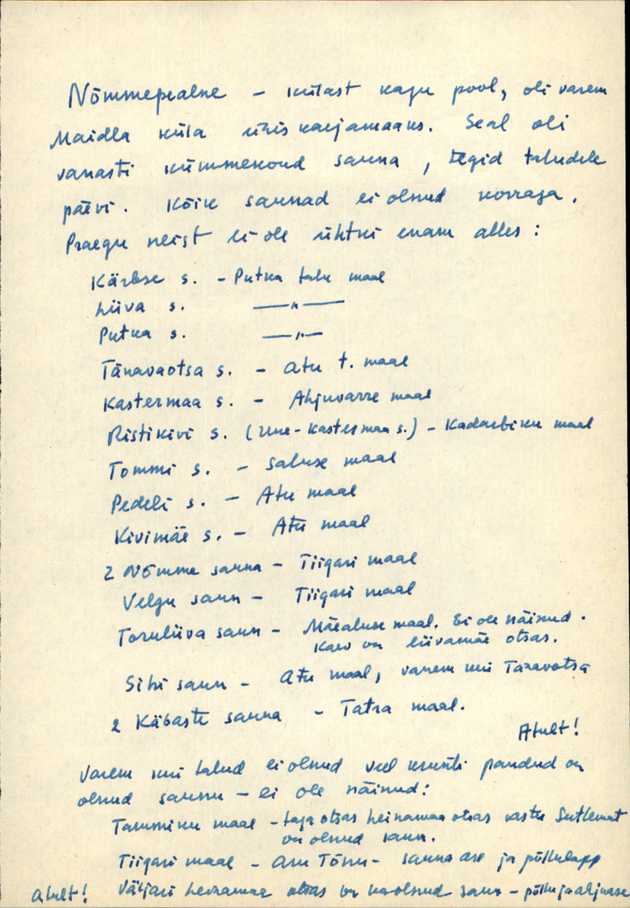 Nõmmepealne – külast kagu pool, oli varem
Maidla küla ühiskarjamaaks. Seal oli
vanasti kümmekond sauna, tegid taludele
päevi. Kõik saunad ei olnud korraga.
Praegu neist ei ole ühtki enam alles:
Kärbse s. – Putka talu maal
Liiva s. —"—
Putka s. —"—
Tänavaotsa s. – Atu t. maal
Kastermaa s. – Ahjuvarre maal
Ristikivi s. (Uue-Kastermaa s.) – Kadarbiku maal
Tommi s. – Saluse maal
Pedeli s. – Atu maal
Kivimäe s. – Atu maal
2 Nõmme sauna – Tiigari maal
Velgu saun – Tiigari maal
Toruliiva saun – Mäealuse maal. Ei ole näinud.
Kaev on liivamäe otsas.
Sihi saun – Atu maal, varem kui Tänavotsa
2 Käbaste sauna – Tatra maal.
Atult!
Varem kui talud ei olnud veel krunti pandud on
olnud saunu – ei ole näinud:
Tammiku maal – taga otsas heinamaa otsas vastu Sutlemat
on olnud saun.
Tiigari maal – Aru Tõnu – sauna ase ja põllulapp
Atult! Väljari heinamaa otsas on ka olnud saun – põllu ja ahjuase